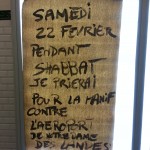 SAMEDI
22 FEVRIER
PENDANT
SHABBAT
JE PRIERAI
POUR LA MANIF
CONTRE
L'AEROPORT
DE NOTRE DAME
DES LANDES